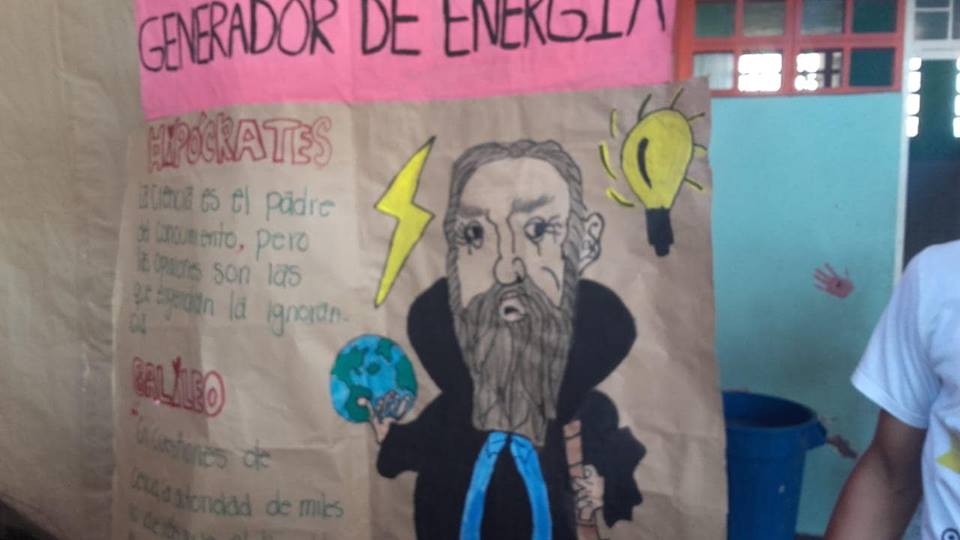 GENERADOR DE ENERGÍA
HIPÓCRATES
La Ciencia es el padre
del conocimiento, pero
las opiniones son las
que engendran la ignoran-
cia
GALILEO
"En Cuestiones de
Ciencia, la autoridad de miles